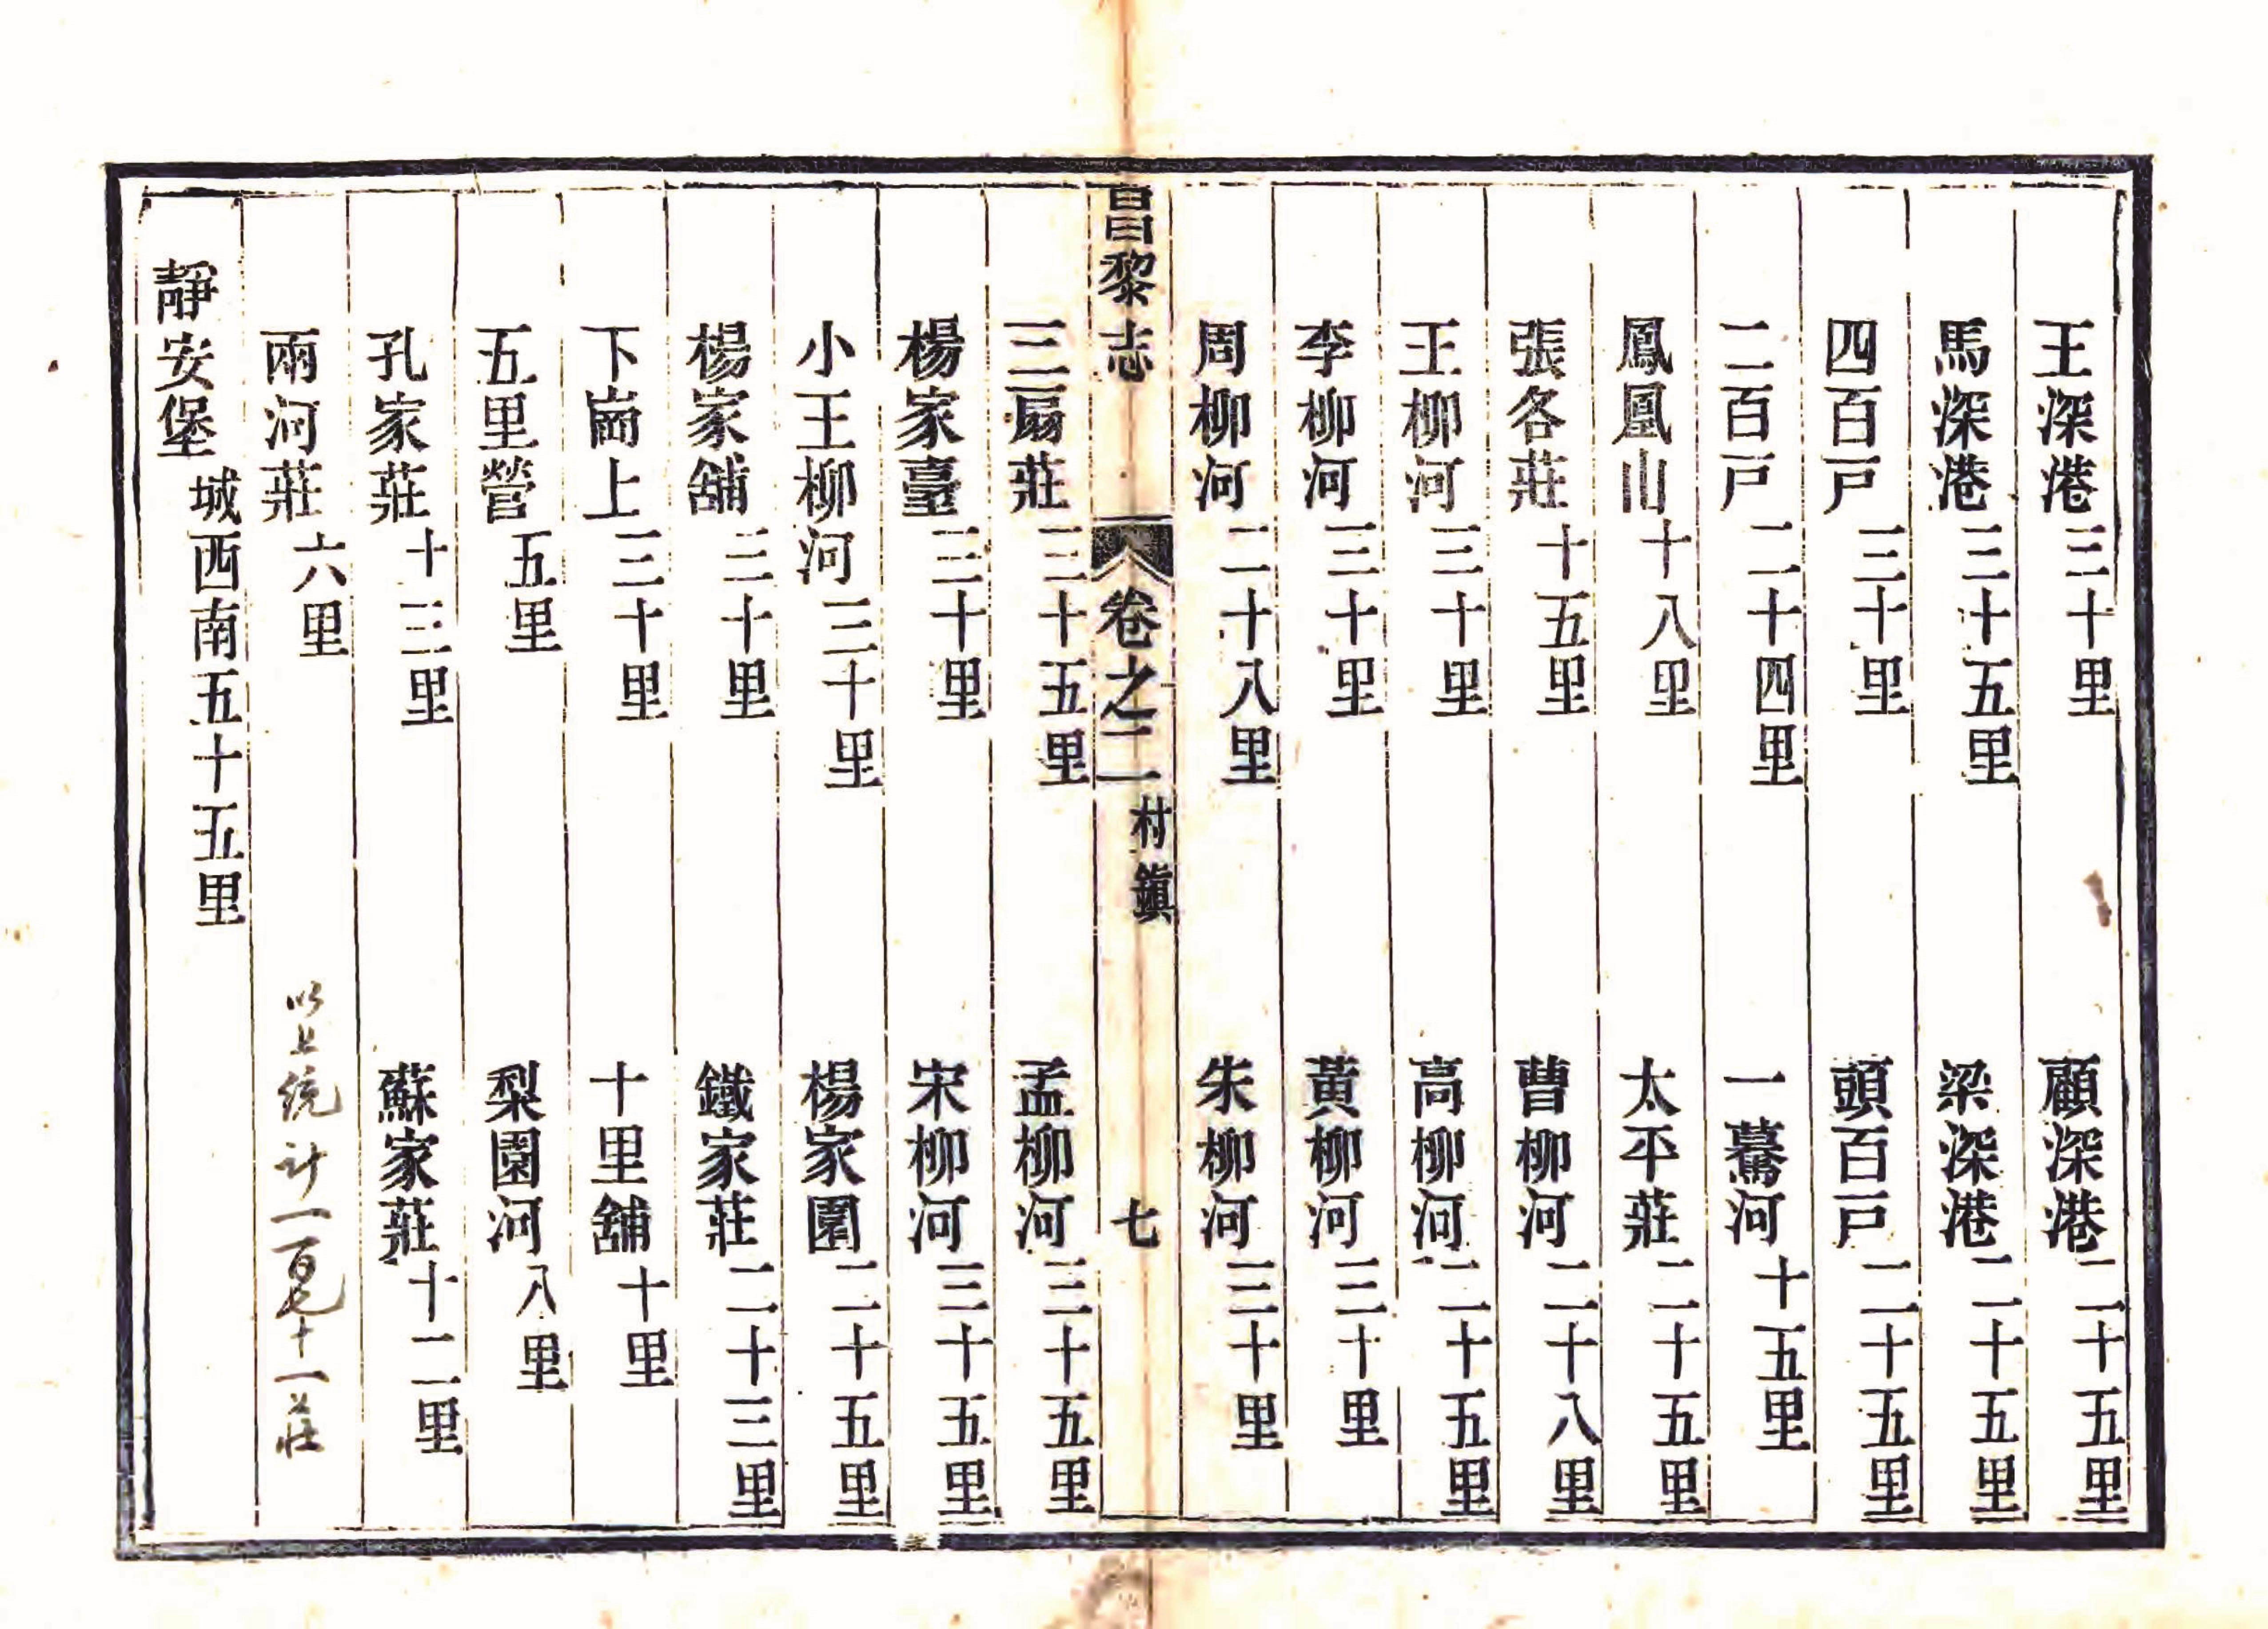 王深港三十里　顧深港二十五里
馬深港三十五里　梁深港二十五里
四百戸三十里　頭百戸二十五里
二百戸二十四里　一驀河十五里
鳳凰山十八里　太平莊二十五里
張各莊十五里　曹柳河二十八里
王柳河三十里　高柳河二十五里
李柳河三十里　黃柳河三十里
周柳河二十八里　朱柳河三十里
昌黎志　卷之二　村鎮　七
三扇莊三十五里　孟柳河三十五里
楊家臺三十里　宋柳河三十五里
小王柳河三十里　楊家園二十五里
楊家舖三十里　鐵家莊二十三里
下崗上三十里　十里舖十里
五里營五里　梨園河八里
孔家莊十三里　蘇家莊十二里
兩河莊六里　以上統计一百七十一莊
靜安堡城西南五十五里